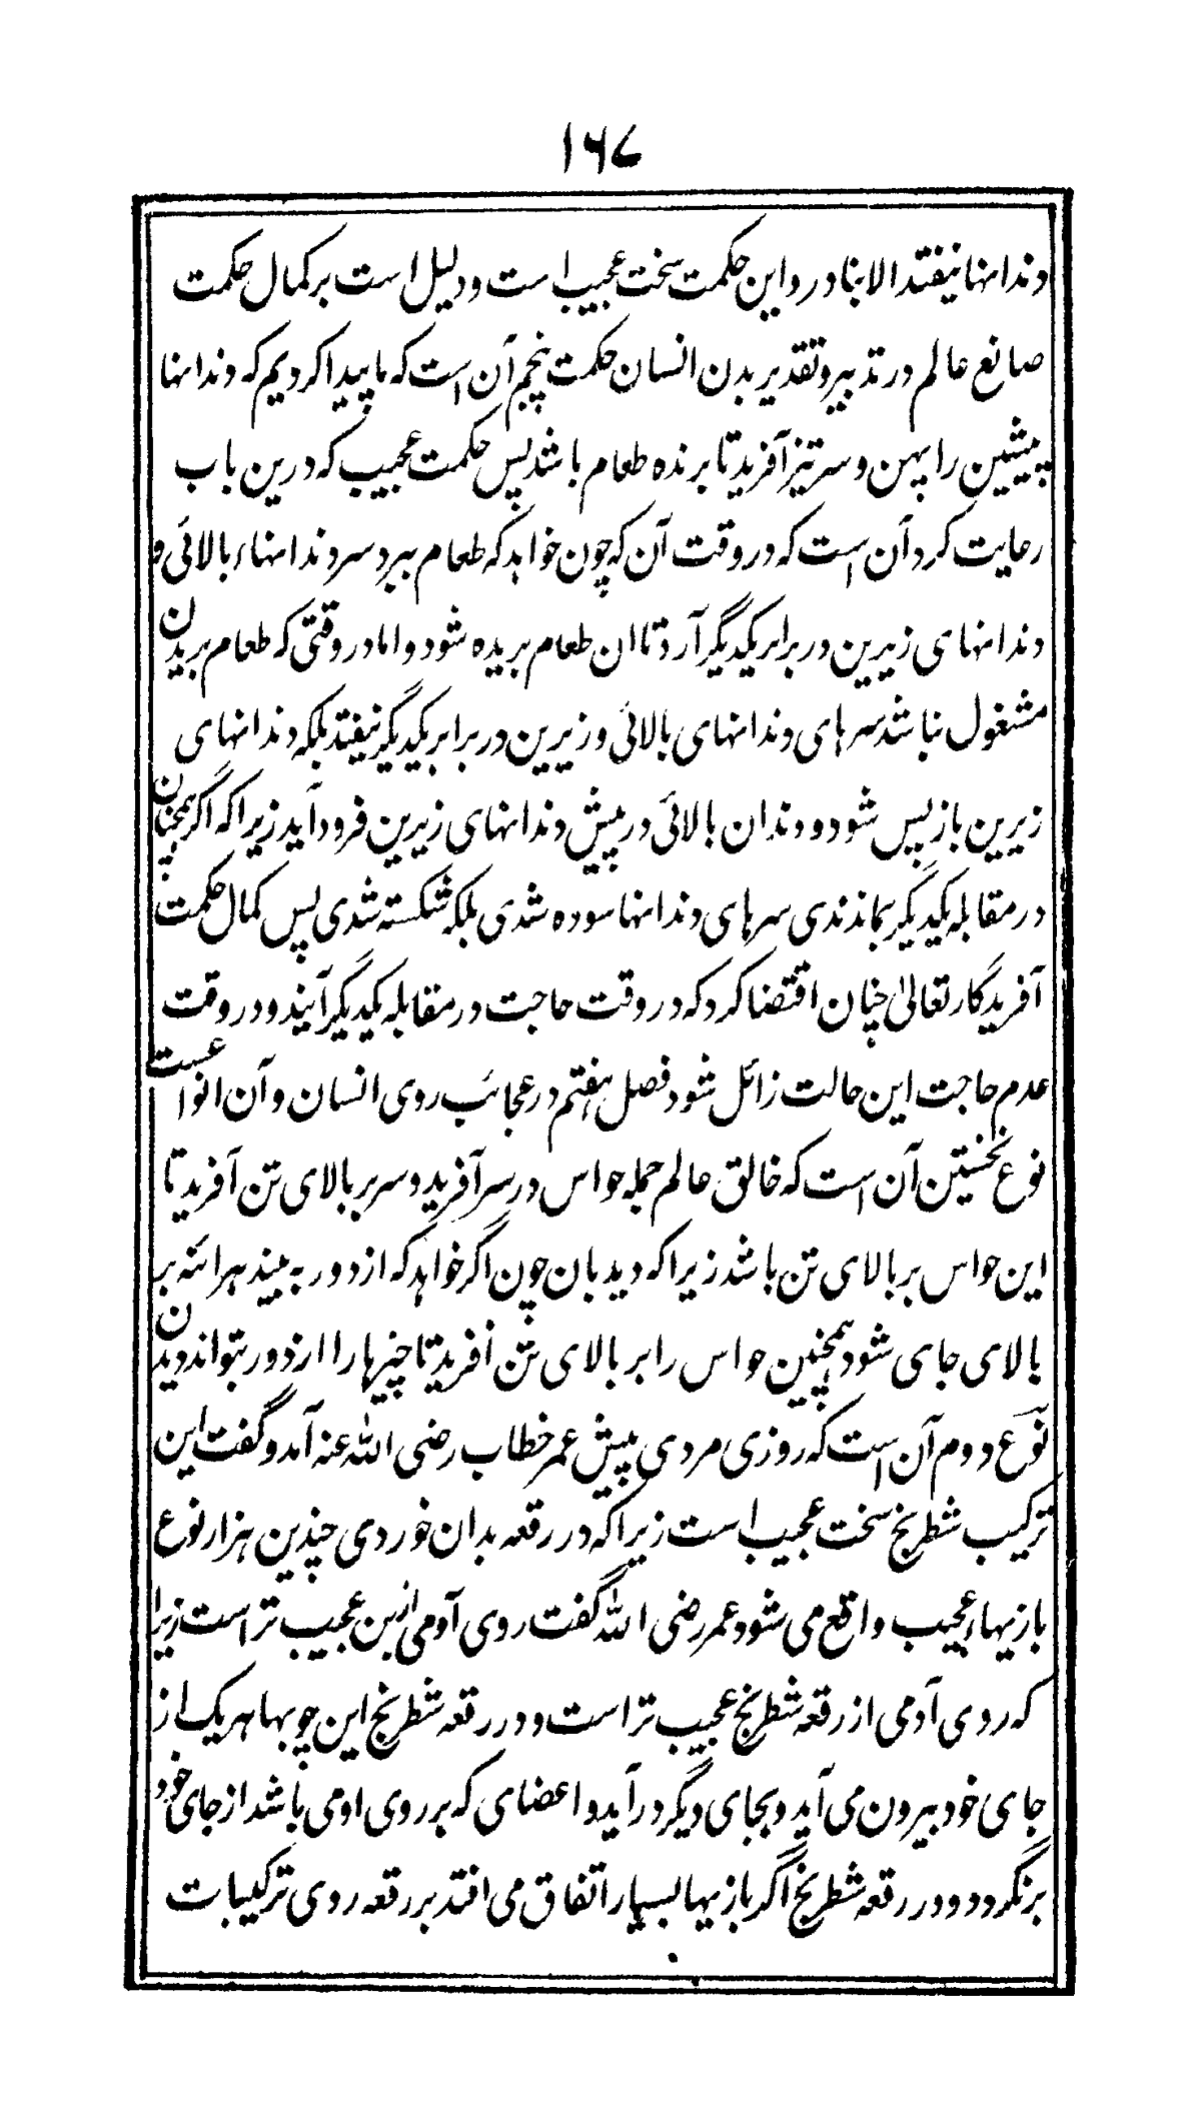 ۱۶۷
دندانها نیفتد الا بنادر و این حکمت سخت عجیب است و دلیل است بر کمال حکمت
صانع عالم در تدبیر و تقدیر بدن انسان حکمت پنجم آن است که ما پیدا کردیم که دندانها
پیشین را پهن و سر تیز آفرید تا برنده طعام باشد پس حکمت عجیب که درین باب
رعایت کرد آن است که در وقت آن که چون خواهد که طعام ببرد سر دندانهاء بالائی و
دندانهای زیرین در برابر یکدیگر آرد تا ان طعام بریده شود و اما در وقتی که طعام بریدن
مشغول نباشد سرهای دندانهای بالائی و زیرین در برابر یکدیگر نیفتد بلکه دندانهای
زیرین باز پس شود و دندان بالائی در پیش دندانهای زیرین فرود آید زیرا که اگر همچنان
در مقابله یکدیگر بماندندی سرهای دندانها سوده شدی بلکه شکسته شدی پس کمال حکمت
آفریدگار تعالیٰ چنان اقتضا کرد که در وقت حاجت در مقابله یکدیگر آیند و در وقت
عدم حاجت این حالت زائل شود فصل هفتم در عجائب روی انسان و آن انواعست
نوع نخستین آن است که خالق عالم جمله حواس در سر آفرید و سر بر بالای تن آفرید تا
این حواس بر بالای تن باشد زیرا که دیدبان چون اگر خواهد که از دور به بیند هرائنه بر
بالای جای شود همچنین حواس را بر بالای تن آفرید تا چیزها را از دور بتواند دیدن
نوع دوم آن است که روزی مردی پیش عمر خطاب رضی الله عنه آمد و گفت این
ترکیب شطرنج سخت عجیب است زیرا که در رقعه بدان خوردی چندین هزار نوع
بازیهاء عجیب واقع می شود عمر رضی الله گفت روی آدمی ازین عجیب تر است زیرا
که روی آدمی از رقعه شطرنج عجیب تر است و در رقعه شطرنج این چوبها هر یک از
جای خود بیرون می آید و بجای دیگر در آید و اعضای که بر روی او می باشد از جای خود
برنگردد و در رقعه شطرنج اگر بازیها بسیار اتفاق می افتد بر رقعه روی ترکیبات